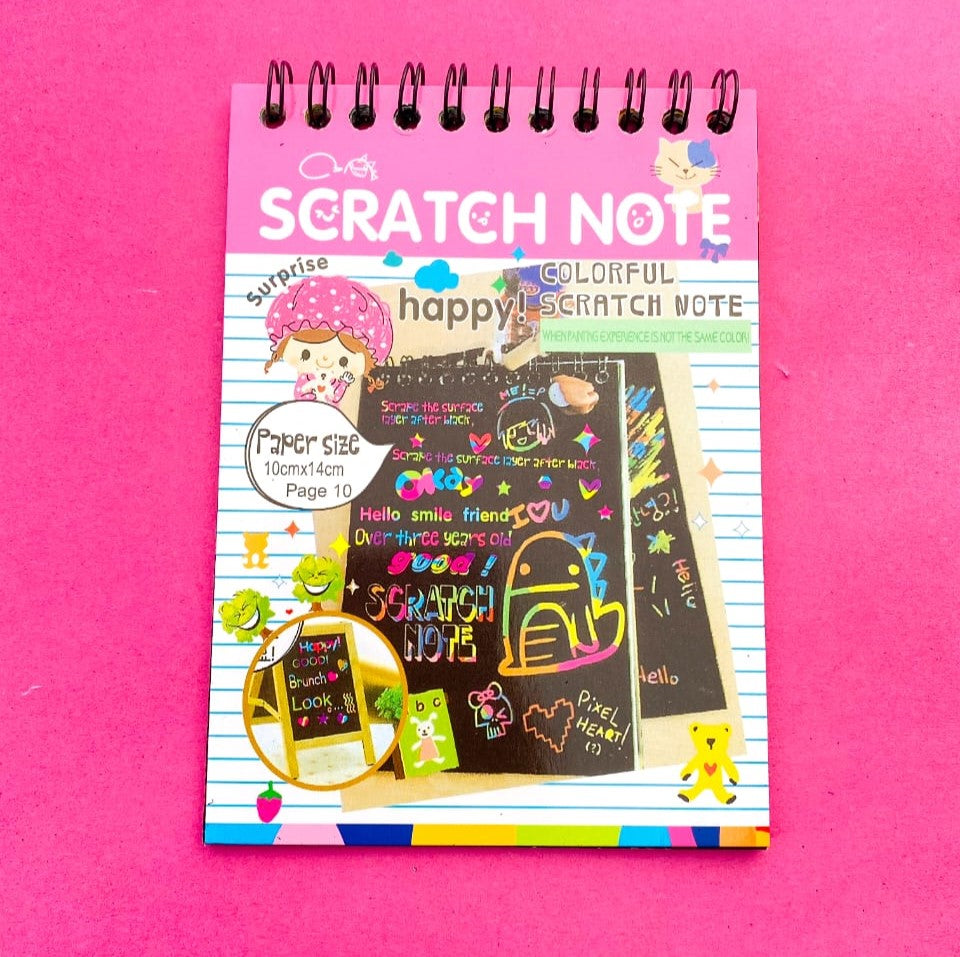 SCRATCH NOTE
Surprise
happy!
COLORFUL
SCRATCH NOTE
WHEN PAINTING EXPERIENCE IS NOT THE SAME COLOR
Paper size
10cmx14cm
Page 10
Scrape the surface
layer after black.
ME!=P
Scrape the surface layer after black.
Hello smile friend
I U
Over three years old
good!
SCRATCH
NOTE
Hello
Hello
PiXEL
HEART!
(?)
b c
Happy!
GOOD!
Brunch
Look